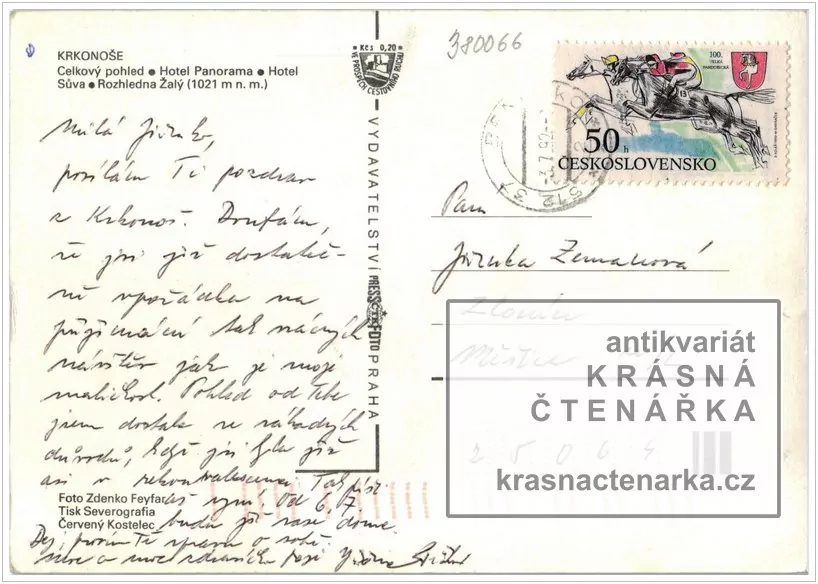 KRKONOŠE
Celkový pohled ● Hotel Panorama ● Hotel
Sůva ● Rozhledna Žalý (1021 m n. m.)
Milá Jiřinko,
posílám Ti pozdrav
z Krkonoš. Doufám,
že jsi již dostateč-
ně vpořádku na
přijímání tak vzácných
návštěv jak je moje
maličkost. Pohled od Tebe
jsem dostala ze záhadných
důvodů, když jsi byla již
asi v rekonvalescenci. Tak
od 6. 7.
budu již zase doma
Dej, prosím Tě zprávu o sobě.
Foto Zdenko Feyfar
Tisk Severografia
Červený Kostelec
Kčs 0,20
VE PROSPĚCH CESTOVNÍHO RUCHU
VYDAVATELSTVÍ PRESSFOTO PRAHA
ČTK
380066
100.
VELKÁ
PARDUBICKÁ
13
50 h
ČESKOSLOVENSKO
512 37
Paní
Jiřinka Zemanová
Městec
25064
antikvariát
KRÁSNÁ
ČTENÁŘKA
krasnactenarka.cz